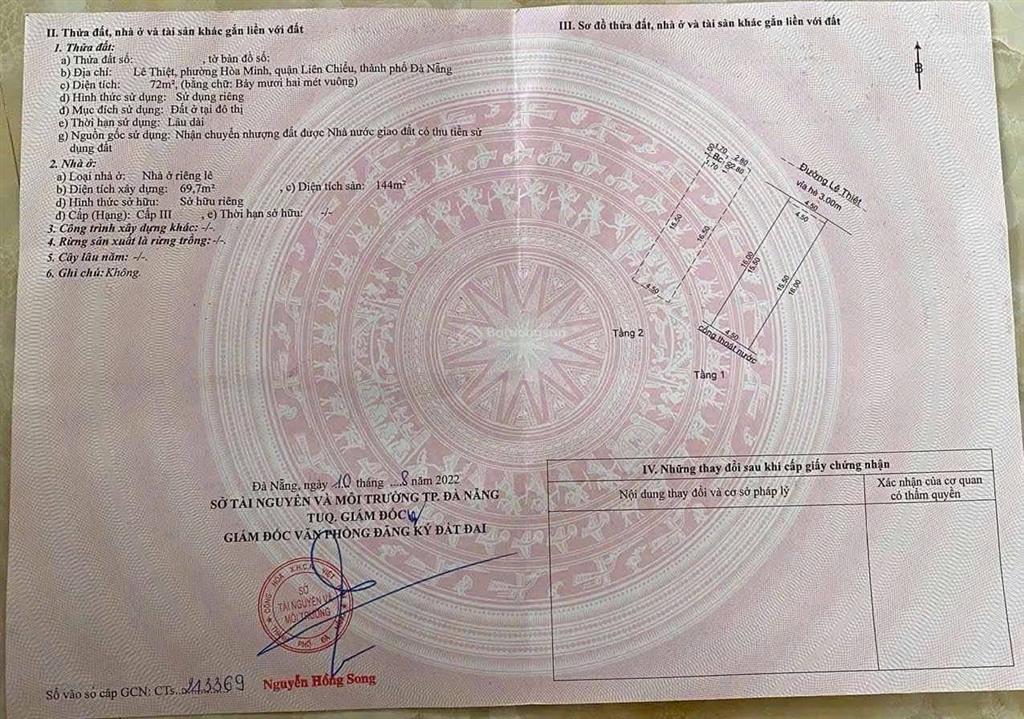 II. Thửa đất, nhà ở và tài sản khác gắn liền với đất
1. Thửa đất:
a) Thửa đất số: , tờ bản đồ số:
b) Địa chỉ: Lê Thiệt, phường Hòa Minh, quận Liên Chiểu, thành phố Đà Nẵng
c) Diện tích: 72m², (bằng chữ: Bảy mươi hai mét vuông)
d) Hình thức sử dụng: Sử dụng riêng
đ) Mục đích sử dụng: Đất ở tại đô thị
e) Thời hạn sử dụng: Lâu dài
g) Nguồn gốc sử dụng: Nhận chuyển nhượng đất được Nhà nước giao đất có thu tiền sử
dụng đất
2. Nhà ở:
a) Loại nhà ở: Nhà ở riêng lẻ
b) Diện tích xây dựng: 69,7m² , c) Diện tích sàn: 144m²
d) Hình thức sở hữu: Sở hữu riêng
đ) Cấp (Hạng): Cấp III , e) Thời hạn sở hữu: -/-
3. Công trình xây dựng khác: -/-.
4. Rừng sản xuất là rừng trồng: -/-.
5. Cây lâu năm: -/-.
6. Ghi chú: Không.
Đà Nẵng, ngày 10 tháng 8 năm 2022
SỞ TÀI NGUYÊN VÀ MÔI TRƯỜNG TP. ĐÀ NẴNG
TUQ. GIÁM ĐỐC
GIÁM ĐỐC VĂN PHÒNG ĐĂNG KÝ ĐẤT ĐAI
SỞ
TÀI NGUYÊN VÀ
MÔI TRƯỜNG
Nguyễn Hồng Song
Số vào sổ cấp GCN: CTs. 213369
III. Sơ đồ thửa đất, nhà ở và tài sản khác gắn liền với đất
B
Đường Lê Thiệt
vỉa hè 3.00m
4.50
4.50
16.00
15.50
15.50
16.00
4.50
cống thoát nước
Tầng 1
1.70
2.80
Bc:
1.70
2.80
15.50
16.50
4.50
Tầng 2
Batdongsan
IV. Những thay đổi sau khi cấp giấy chứng nhận
Nội dung thay đổi và cơ sở pháp lý
Xác nhận của cơ quan
có thẩm quyền